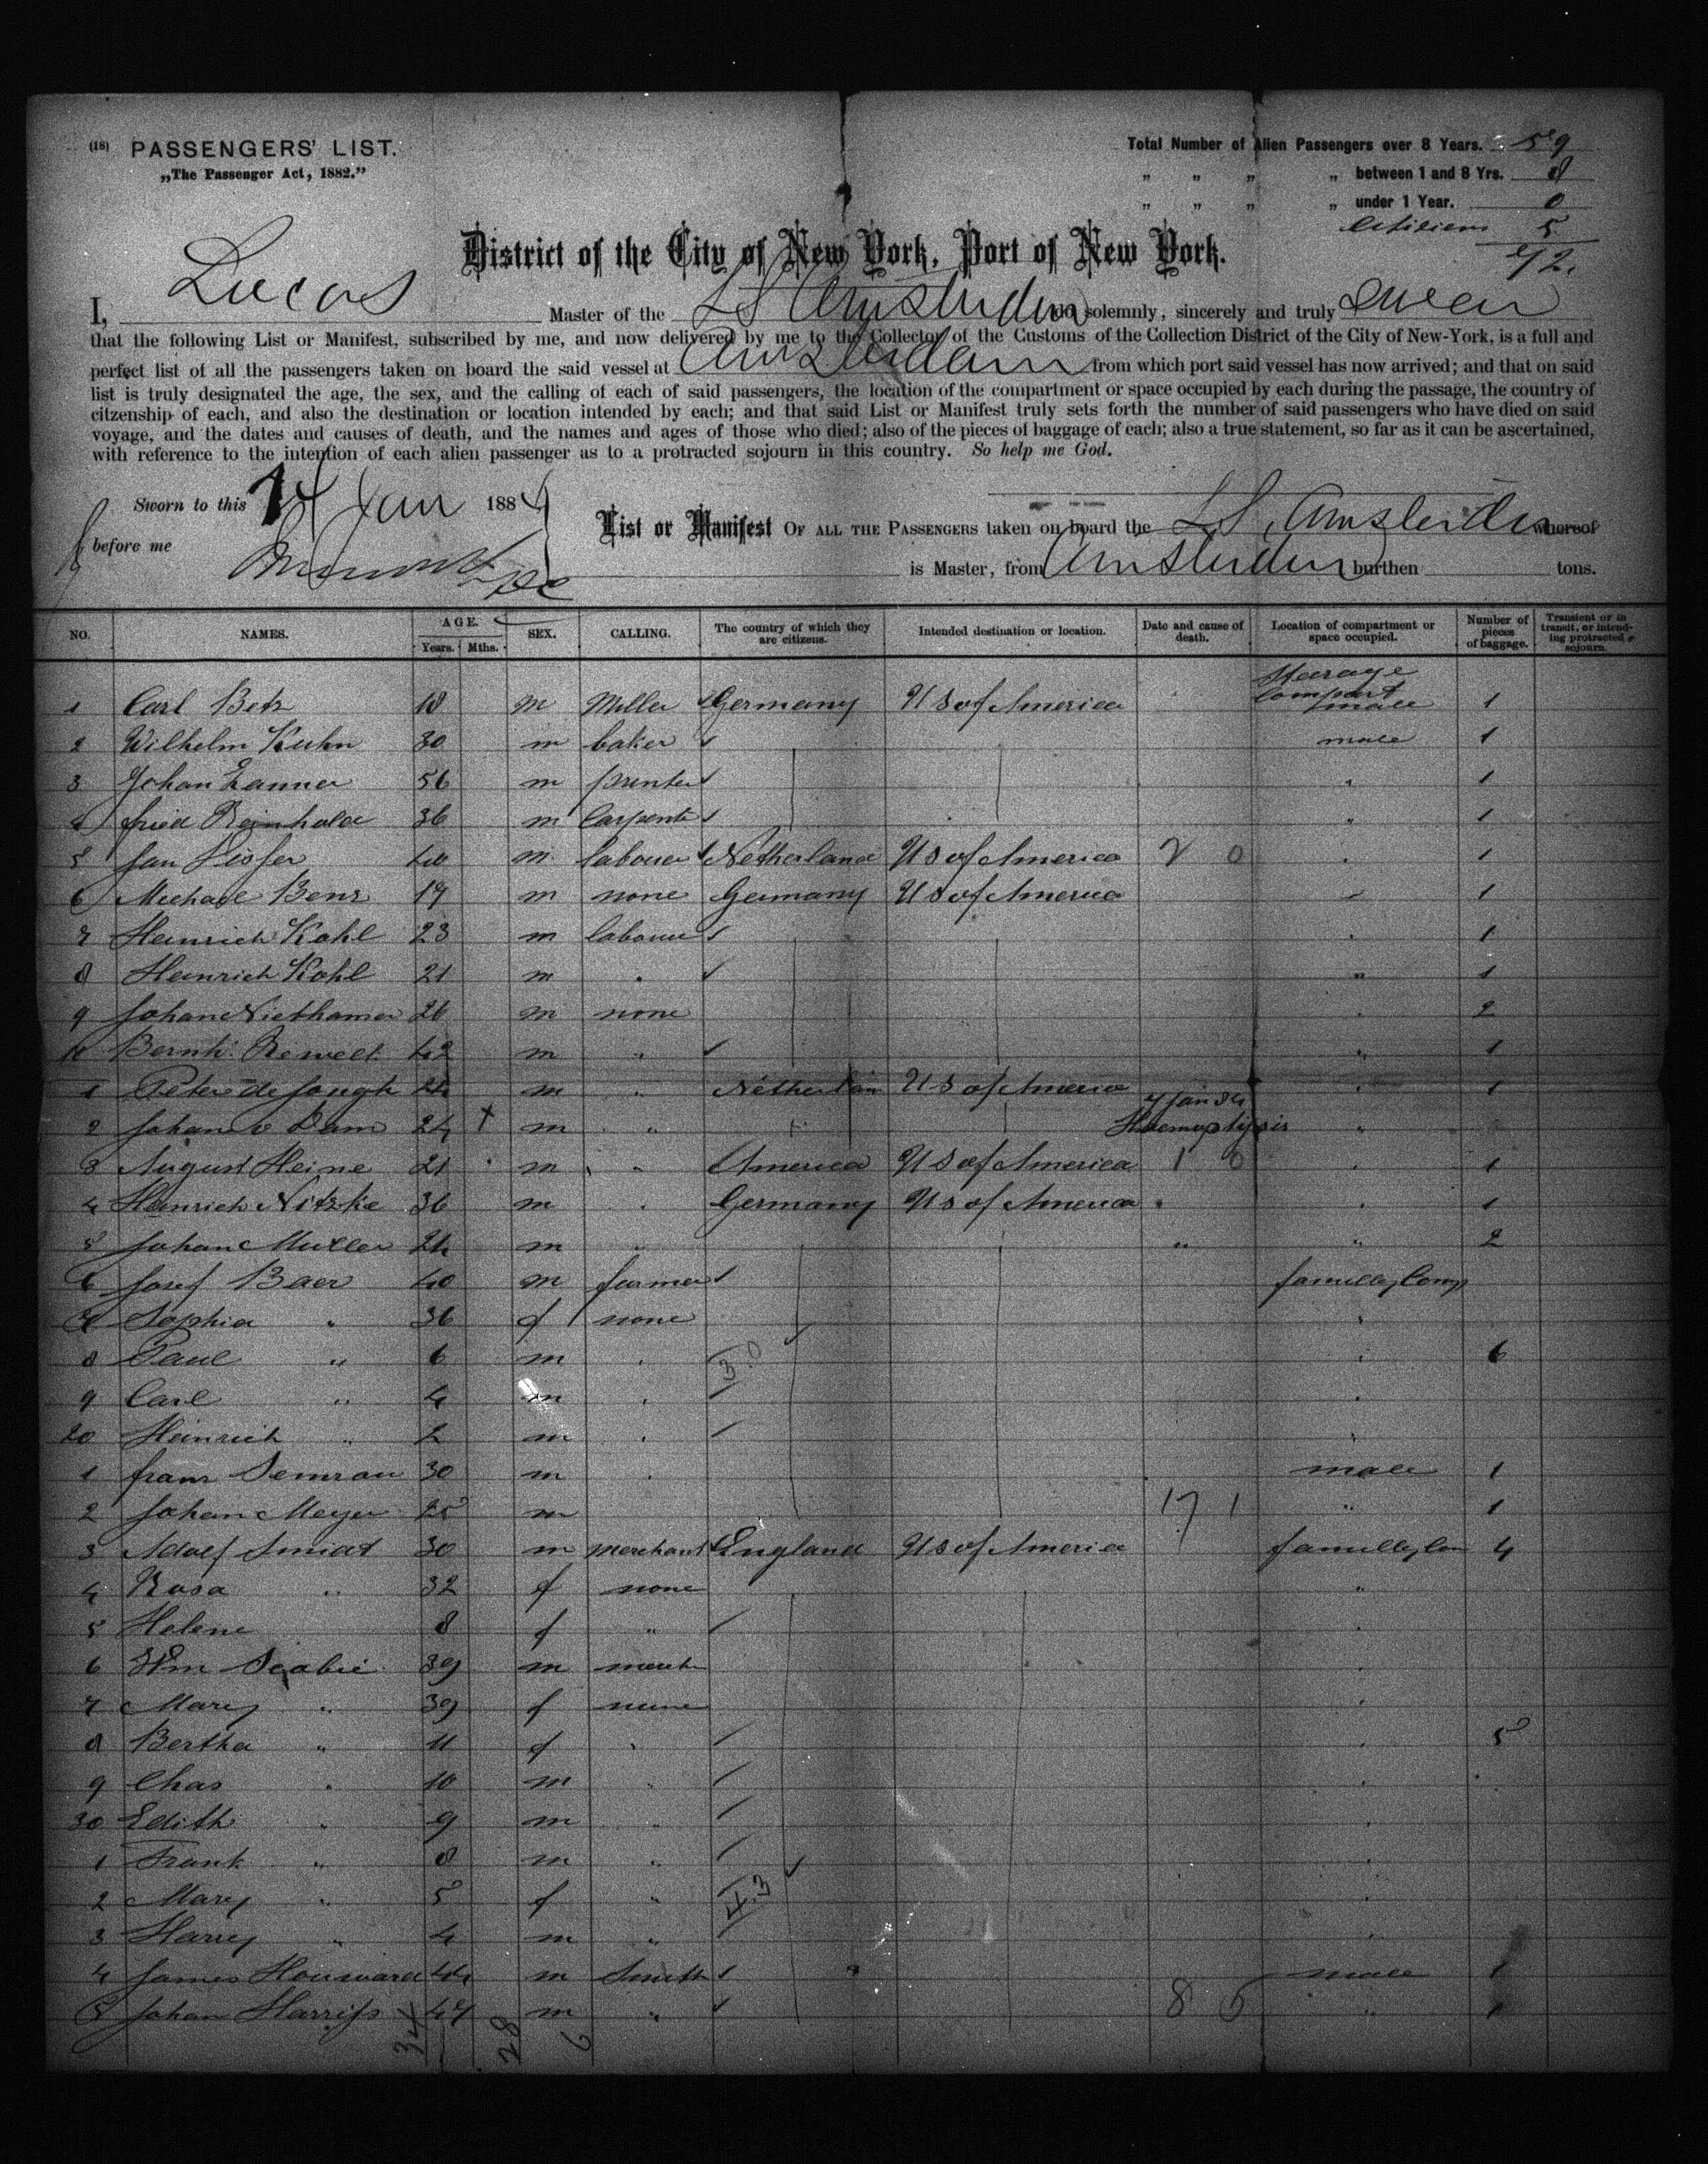 (18) PASSENGERS' LIST.
„The Passenger Act, 1882.”
Total Number of Alien Passengers over 8 Years. 59
„ „ „ „ between 1 and 8 Yrs. 8
„ „ „ „ under 1 Year. 0
Citizens 5
72.
District of the City of New York, Port of New York.
I, Lucas Master of the SS Amsterdam do solemnly, sincerely and truly swear
that the following List or Manifest, subscribed by me, and now delivered by me to the Collector of the Customs of the Collection District of the City of New-York, is a full and
perfect list of all the passengers taken on board the said vessel at Amsterdam from which port said vessel has now arrived; and that on said
list is truly designated the age, the sex, and the calling of each of said passengers, the location of the compartment or space occupied by each during the passage, the country of
citzenship of each, and also the destination or location intended by each; and that said List or Manifest truly sets forth the number of said passengers who have died on said
voyage, and the dates and causes of death, and the names and ages of those who died; also of the pieces of baggage of each; also a true statement, so far as it can be ascertained,
with reference to the intention of each alien passenger as to a protracted sojourn in this country. So help me God.
Sworn to this 14 Jan 1884
before me
List or Manifest OF ALL THE PASSENGERS taken on board the SS. Amsterdam whereof
is Master, from Amsterdam burthen tons.
NO. NAMES. AGE. Years. Mths. SEX. CALLING. The country of which they are citizens. Intended destination or location. Date and cause of death. Location of compartment or space occupied. Number of pieces of baggage. Transient or in transit, or intending protracted sojourn.
Stearage Compart
1 Carl Betz 18 m Miller Germany US of America male 1
2 Wilhelm Kuhn 30 m baker male 1
3 Johan Zanner 56 m printer " 1
4 fried Reinhold 36 m Carpente " 1
5 Jan 40 m labouer Netherland US of America 2 0 " 1
6 Michael Benz 19 m none Germany US of America " 1
7 Heinrich Kohl 23 m labouer " 1
8 Heinrich Kohl 21 m " " 1
9 Johan Niethamer 26 m none " 2
10 Bernh. Rewelt 42 m " " 1
1 Peter de Jongh 24 m " Netherlan US of America " 1
2 Johan v Dam 24 + m " 7 Jan 84 Haemoptysis "
3 August Heine 21 m " America US of America 1 0 " 1
4 Heinrich Nitzke 36 m " Germany US of America " 1
5 Johan Muller 24 m " " 2
6 Josef Baer 40 m farmer familley Comp
7 Sophia " 36 f none "
8 Paul " 6 m " 30 " 6
9 Carl " 4 m " "
20 Heinrich " 2 m " "
1 franz Semrau 30 m " male 1
2 Johan Meyer 25 m 17 1 " 1
3 Adolf Smidt 30 m merchant England US of America familley Com 4
4 Rosa " 32 f none "
5 Helene 8 f " "
6 Wm Scabie 39 m merch "
7 Mary " 39 f none "
8 Bertha " 11 f " " 5
9 Chas " 10 m " "
30 Edith " 9 m " "
1 Frank " 8 m " "
2 Mary " 5 f " 43 "
3 Harry " 4 m " "
4 James Houward 44 m Smith male 1
5 Johan Harriss 47 m " 8 5 " 1
34 28 6